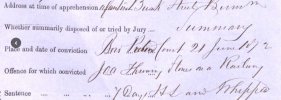 Address at time of apprehension
Whether summarily disposed of or tried by Jury ... Summary
Place and date of conviction Court 21 June 1872
Offence for which convicted Throwing Stones on a Railway
Sentence ... 7 Days H L and Whipped